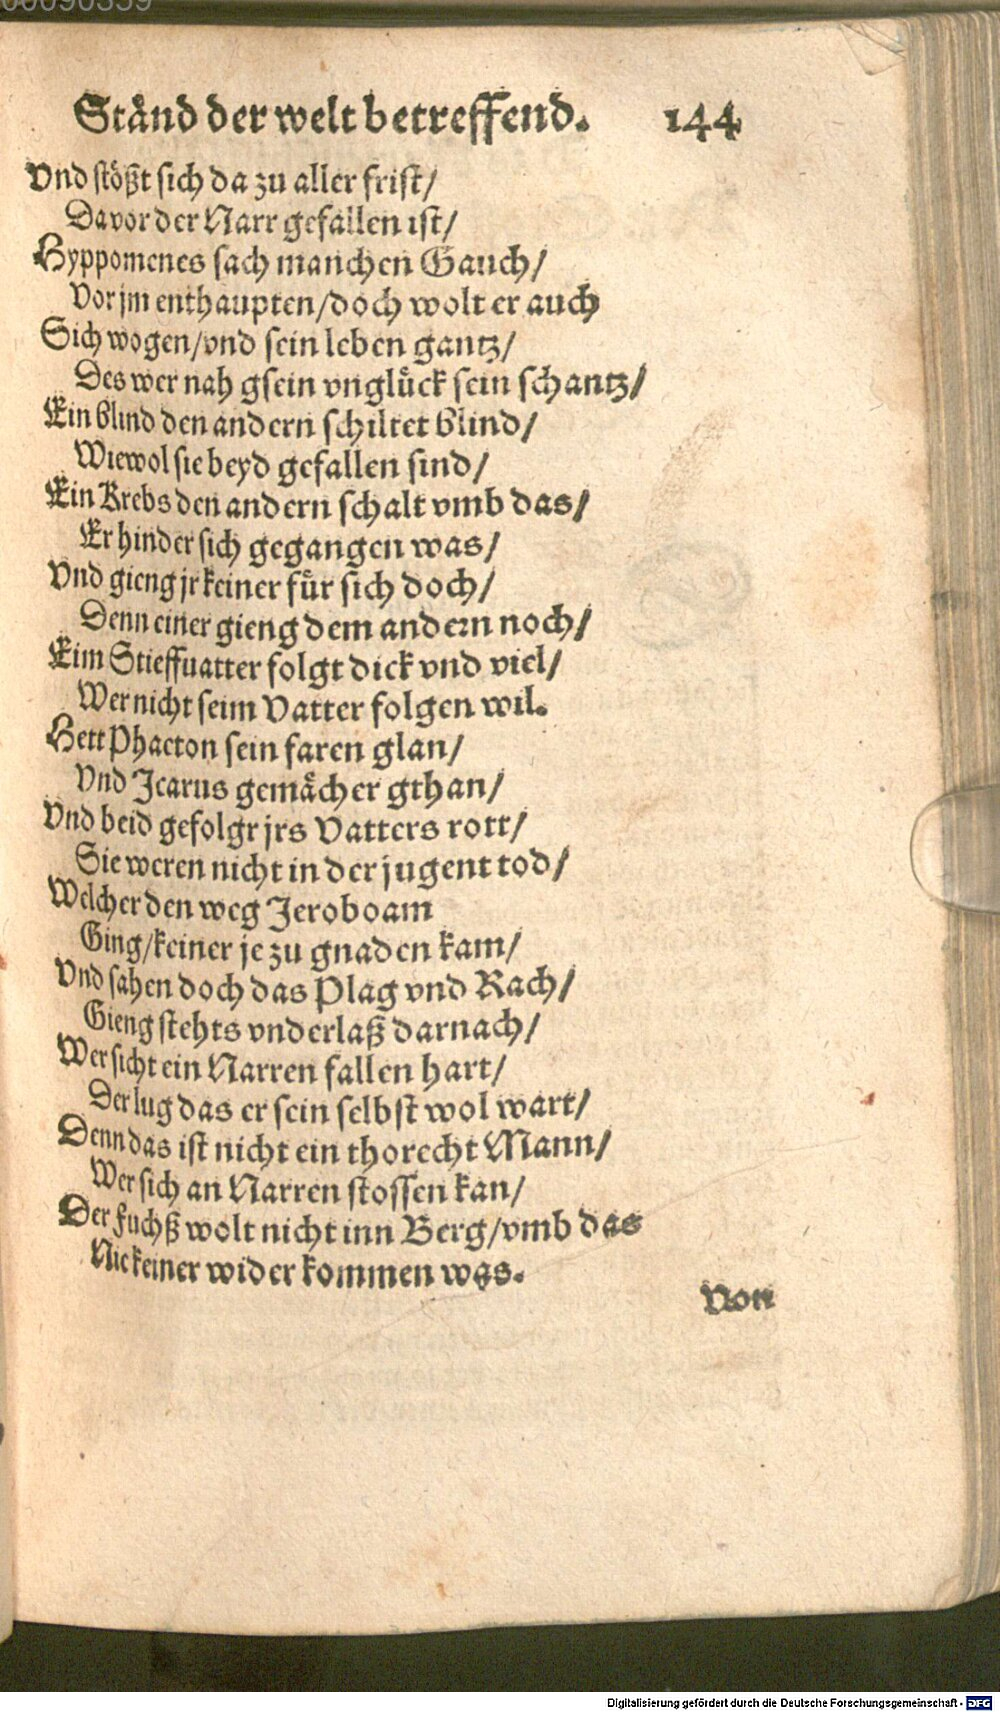 00090359
Ständ der welt betreffend. 144
Vnd stößt sich da zu aller frist/
Davor der Narr gefallen ist/
Hyppomenes sach manchen Gauch/
Vor jm enthaupten/doch wolt er auch
Sich wogen/vnd sein leben gantz/
Des wer nah gsein vnglück sein schantz/
Ein blind den andern schiltet blind/
Wiewol sie beyd gefallen sind/
Ein Krebs den andern schalt vmb das/
Er hinder sich gegangen was/
Vnd gieng jr keiner für sich doch/
Denn einer gieng dem andern noch/
Eim Stieffuatter folgt dick vnd viel/
Wer nicht seim Vatter folgen wil.
Hett Phaeton sein faren glan/
Vnd Icarus gemächer gthan/
Vnd beid gefolgt jrs Vatters rott/
Sie weren nicht in der jugent tod/
Welcher den weg Jeroboam
Ging/keiner je zu gnaden kam/
Vnd sahen doch das Plag vnd Rach/
Gieng stehts vnderlaß darnach/
Wer sicht ein Narren fallen hart/
Der lug das er sein selbst wol wart/
Denn das ist nicht ein thorecht Mann/
Wer sich an Narren stossen kan/
Der fuchß wolt nicht inn Berg/vmb das
Nie keiner wider kommen was.
Von
Digitalisierung gefördert durch die Deutsche Forschungsgemeinschaft - DFG